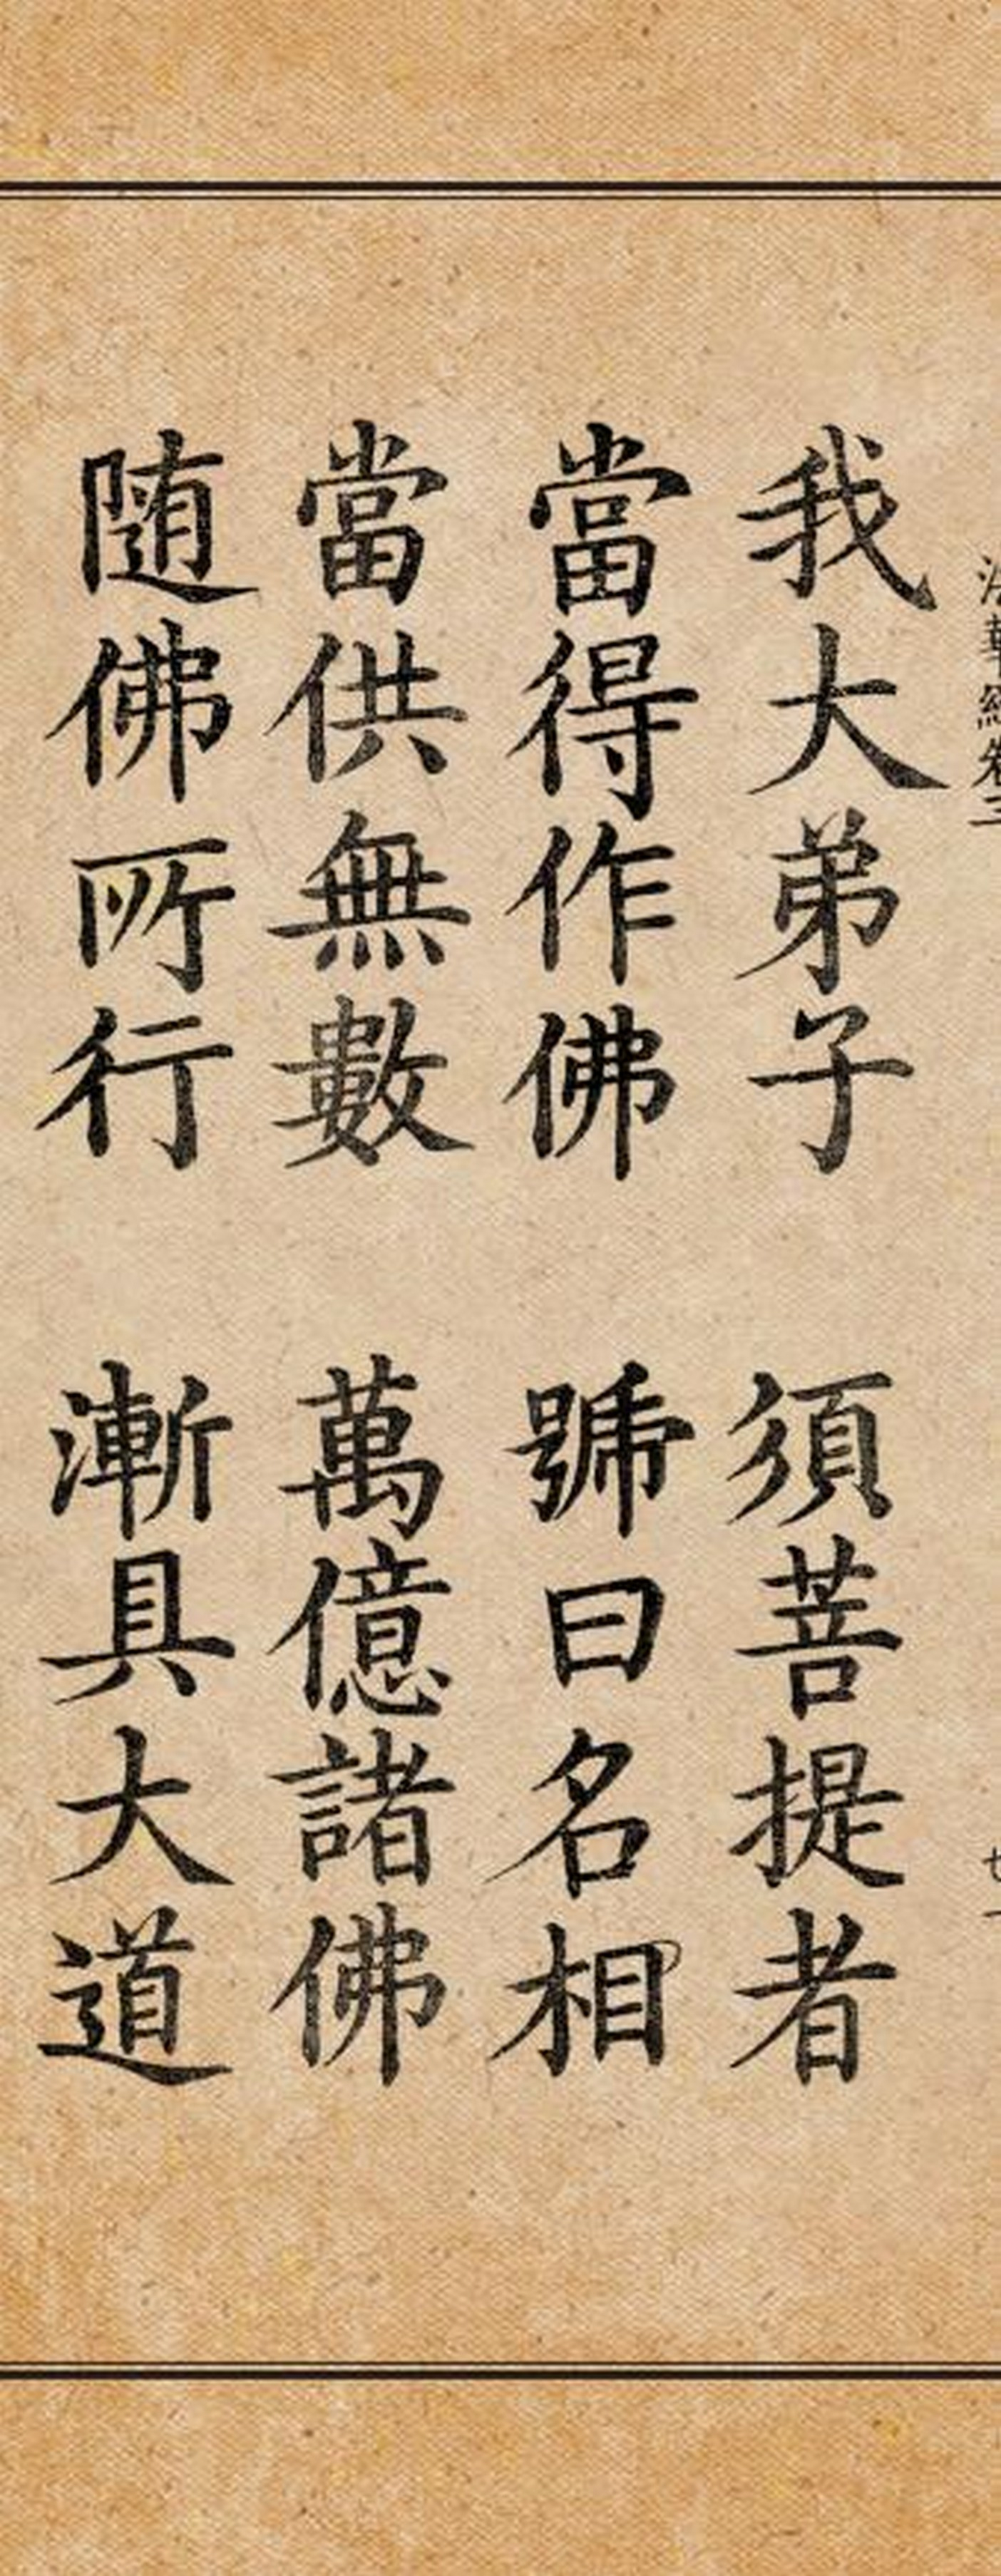 法華經卷三
廿一
我大弟子 須菩提者
當得作佛 號曰名相
當供無數 萬億諸佛
随佛所行 漸具大道